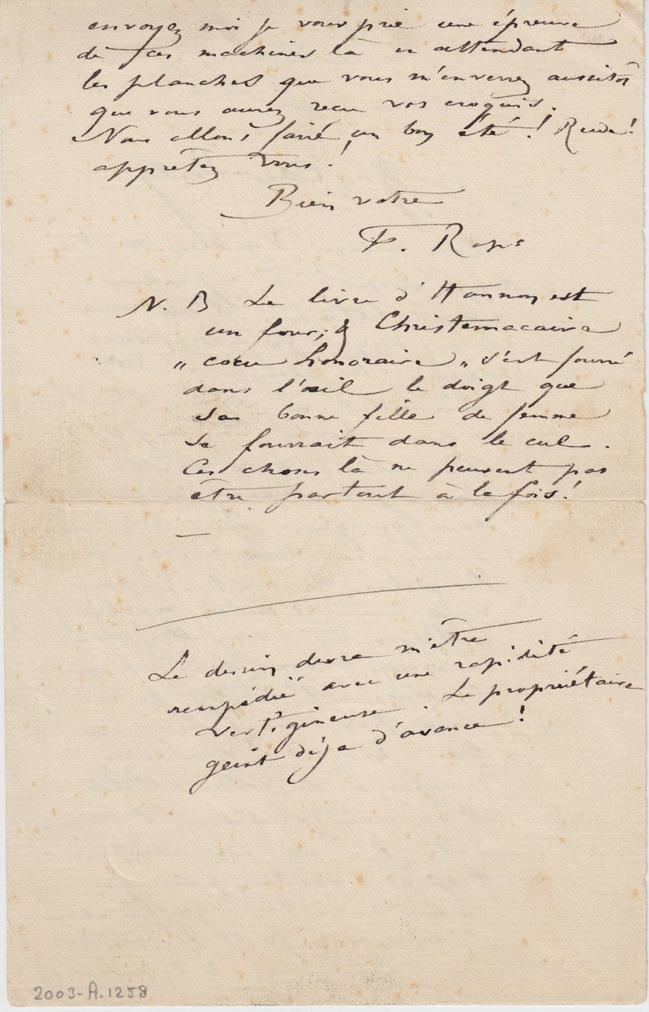 envoyez moi je vous prie une épreuve
de ces machines là en attendant
les planches que vous m'enverrez aussitôt
que vous aurez reçu vos croquis.
Nous allons faire un bon été! Rude!
apprêtez vous!
Bien votre
F. Rops
N. B Le livre d'Hannon est
un four; & Christemacaire
„ cocu honoraire „ s'est fourré
dans l'œil le doigt que
sa bonne fille de femme
se fourrait dans le cul.
Ces choses là ne peuvent pas
être partout à la fois!
—
Le dessin devra m'être
réexpédié avec une rapidité
vertigineuse. Le propriétaire
geint déja d'avance!
2003-A.1258